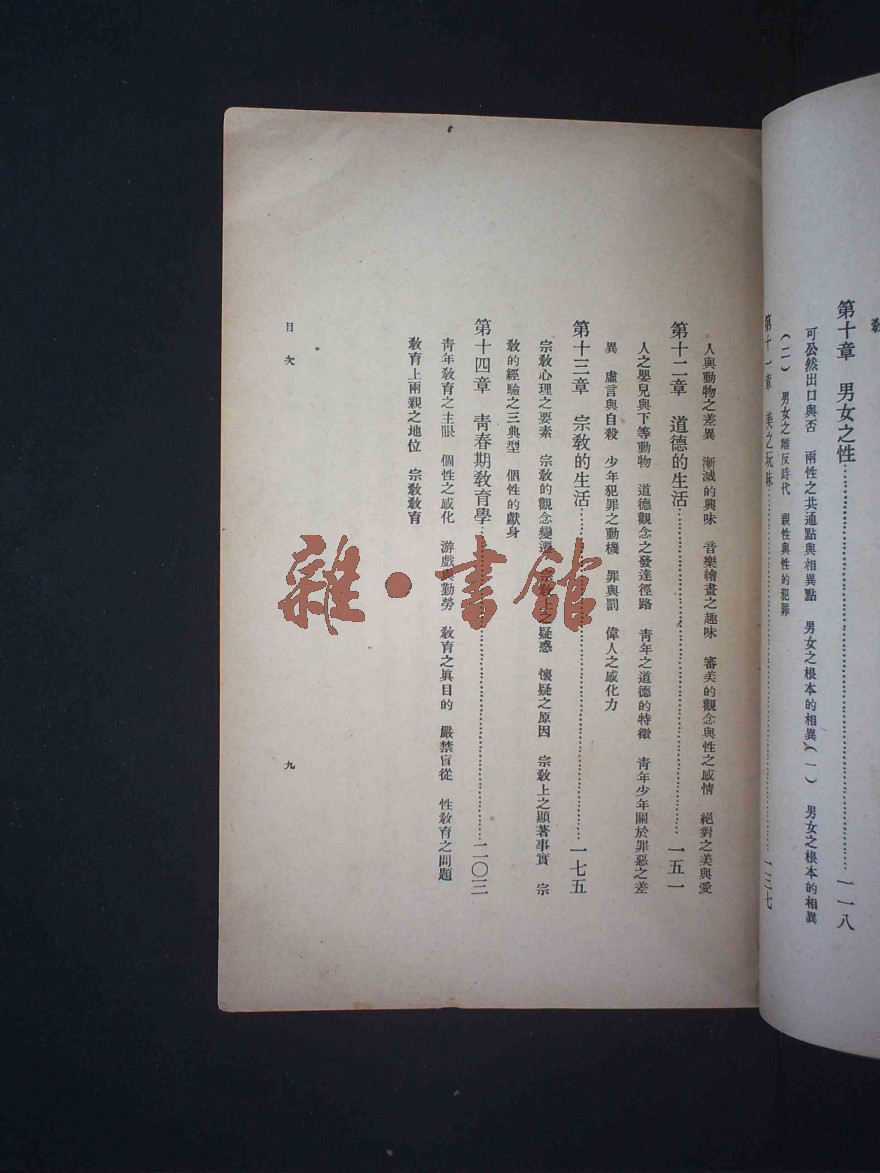 教
第十章　男女之性…………一一八
可公然出口與否　兩性之共通點與相異點　男女之根本的相異(一)　男女之根本的相異
(二)　男女之離反時代　親性與性的犯罪
第十一章　美之玩味…………一三七
人與動物之差異　漸減的興味　音樂繪畫之趣味　審美的觀念與性之感情　絕對之美與愛
第十二章　道德的生活…………一五一
人之嬰兒與下等動物　道德觀念之發達徑路　青年之道德的特徵　青年少年關於罪惡之差
異　虛言與自殺　少年犯罪之動機　罪與罰　偉人之感化力
第十三章　宗教的生活…………一七五
宗教心理之要素　宗教的觀念變遷　宗教上之疑惑　懷疑之原因　宗教上之顯著事實　宗
教的經驗之三典型　個性的獻身
第十四章　青春期教育學…………二〇三
青年教育之主眼　個性之感化　游戲與勤勞　教育之眞目的　嚴禁盲從　性教育之問題
教育上兩親之地位　宗教教育
目次
九
雜·書館